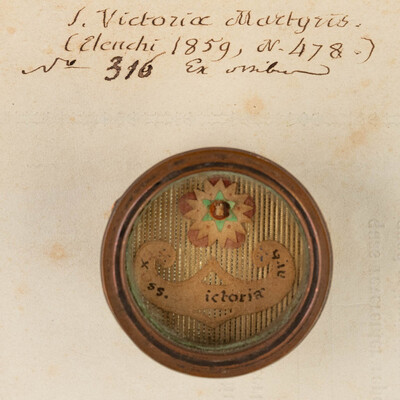 S. Victoriæ Martyris.
(Elenchi 1859, N. 478.)
Nº 316 Ex ossibus
x ss. ictoria